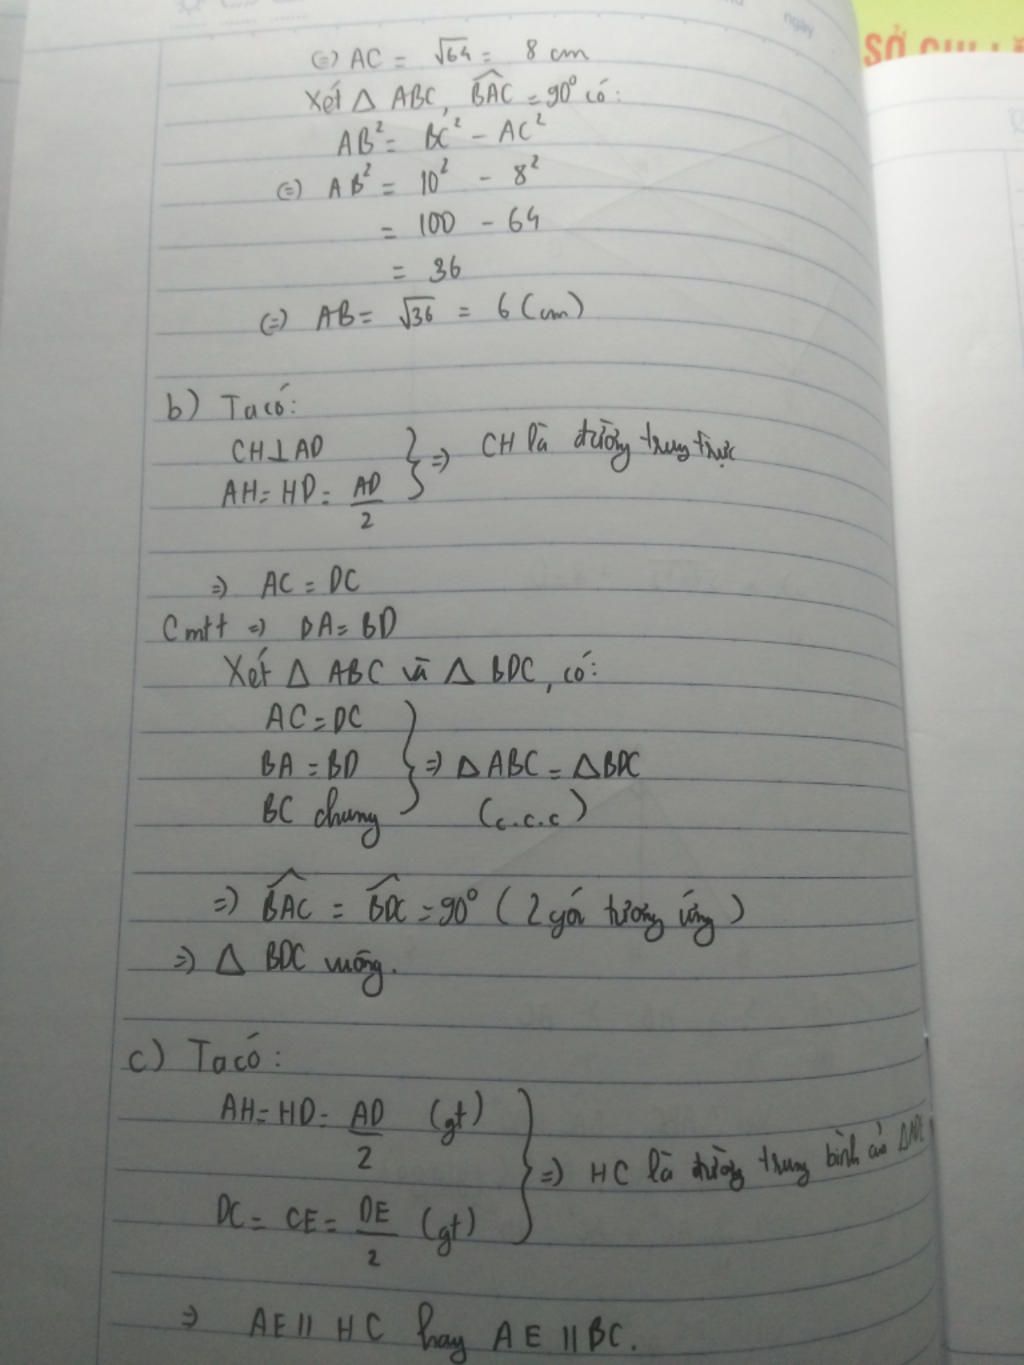 ngày
SỞ
(=) AC = √64 = 8 cm
Xét Δ ABC, BAC = 90° có:
AB² = BC² - AC²
(=) AB² = 10² - 8²
= 100 - 64
= 36
(=) AB = √36 = 6 (cm)
b) Ta có:
CH ⊥ AD
AH = HD = AD/2 } => CH là đường trung trực
=> AC = DC
Cmtt => BA = BD
Xét Δ ABC và Δ BDC, có:
AC = DC
BA = BD } => Δ ABC = Δ BDC
BC chung (c.c.c)
=> BAC = BDC = 90° (2 góc tương ứng)
=> Δ BDC vuông.
c) Ta có:
AH = HD = AD/2 (gt)
} => HC là đường trung bình của Δ
DC = CE = DE/2 (gt)
=> AE // HC hay AE // BC.